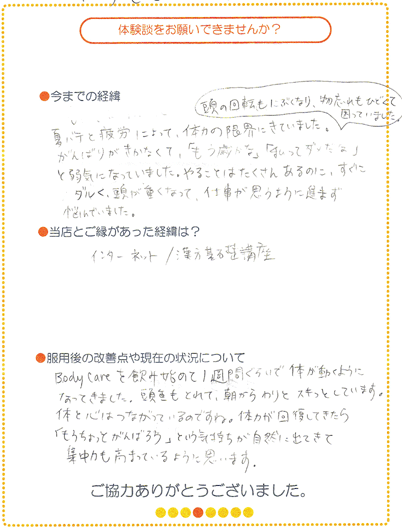 体験談をお願いできませんか？
●今までの経緯
頭の回転もにぶくなり、物忘れもひどくて
困っていました
夏バテと疲労によって、体力の限界にきていました。
がんばりがきかなくて、「もう歳かな」「私ってダメだな」
と弱気になっていました。やることはたくさんあるのに、すぐに
ダルく、頭が重くなって、仕事が思うように進まず
悩んでいました。
●当店とご縁があった経緯は？
インターネット／漢方基礎講座
●服用後の改善点や現在の状況について
Body Careを飲み始めて1週間ぐらいで体が動くように
なってきました。頭重もとれて、朝からわりとスキッとしています。
体と心はつながっているのですね。体力が回復してきたら
「もうちょっとがんばろう」という気持ちが自然に出てきて
集中力も高まっているように思います。
ご協力ありがとうございました。